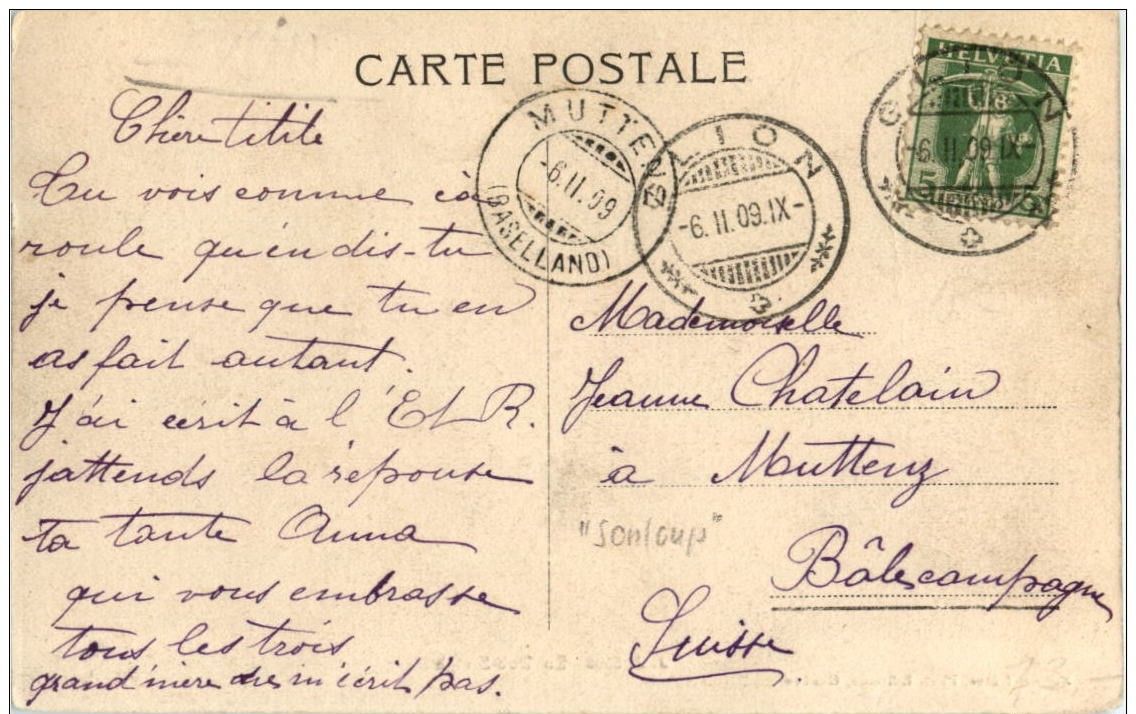 CARTE POSTALE
Chère titile
Tu vois comme çà
roule qu'en dis-tu
je pense que tu en
as fait autant.
J'ai écrit à l'E L R.
j'attends la réponse
ta tante Anna
qui vous embrasse
tous les trois
grand'mère ne m'écrit pas.
MUTTENZ
-6.II.09
(BASELLAND)
GLION
-6.II.09.IX-
HELVETIA
5
GLION
-6.II.09.IX-
Mademoiselle
Jeanne Chatelain
à Muttenz
"Sonloup"
Bâle campagne
Suisse